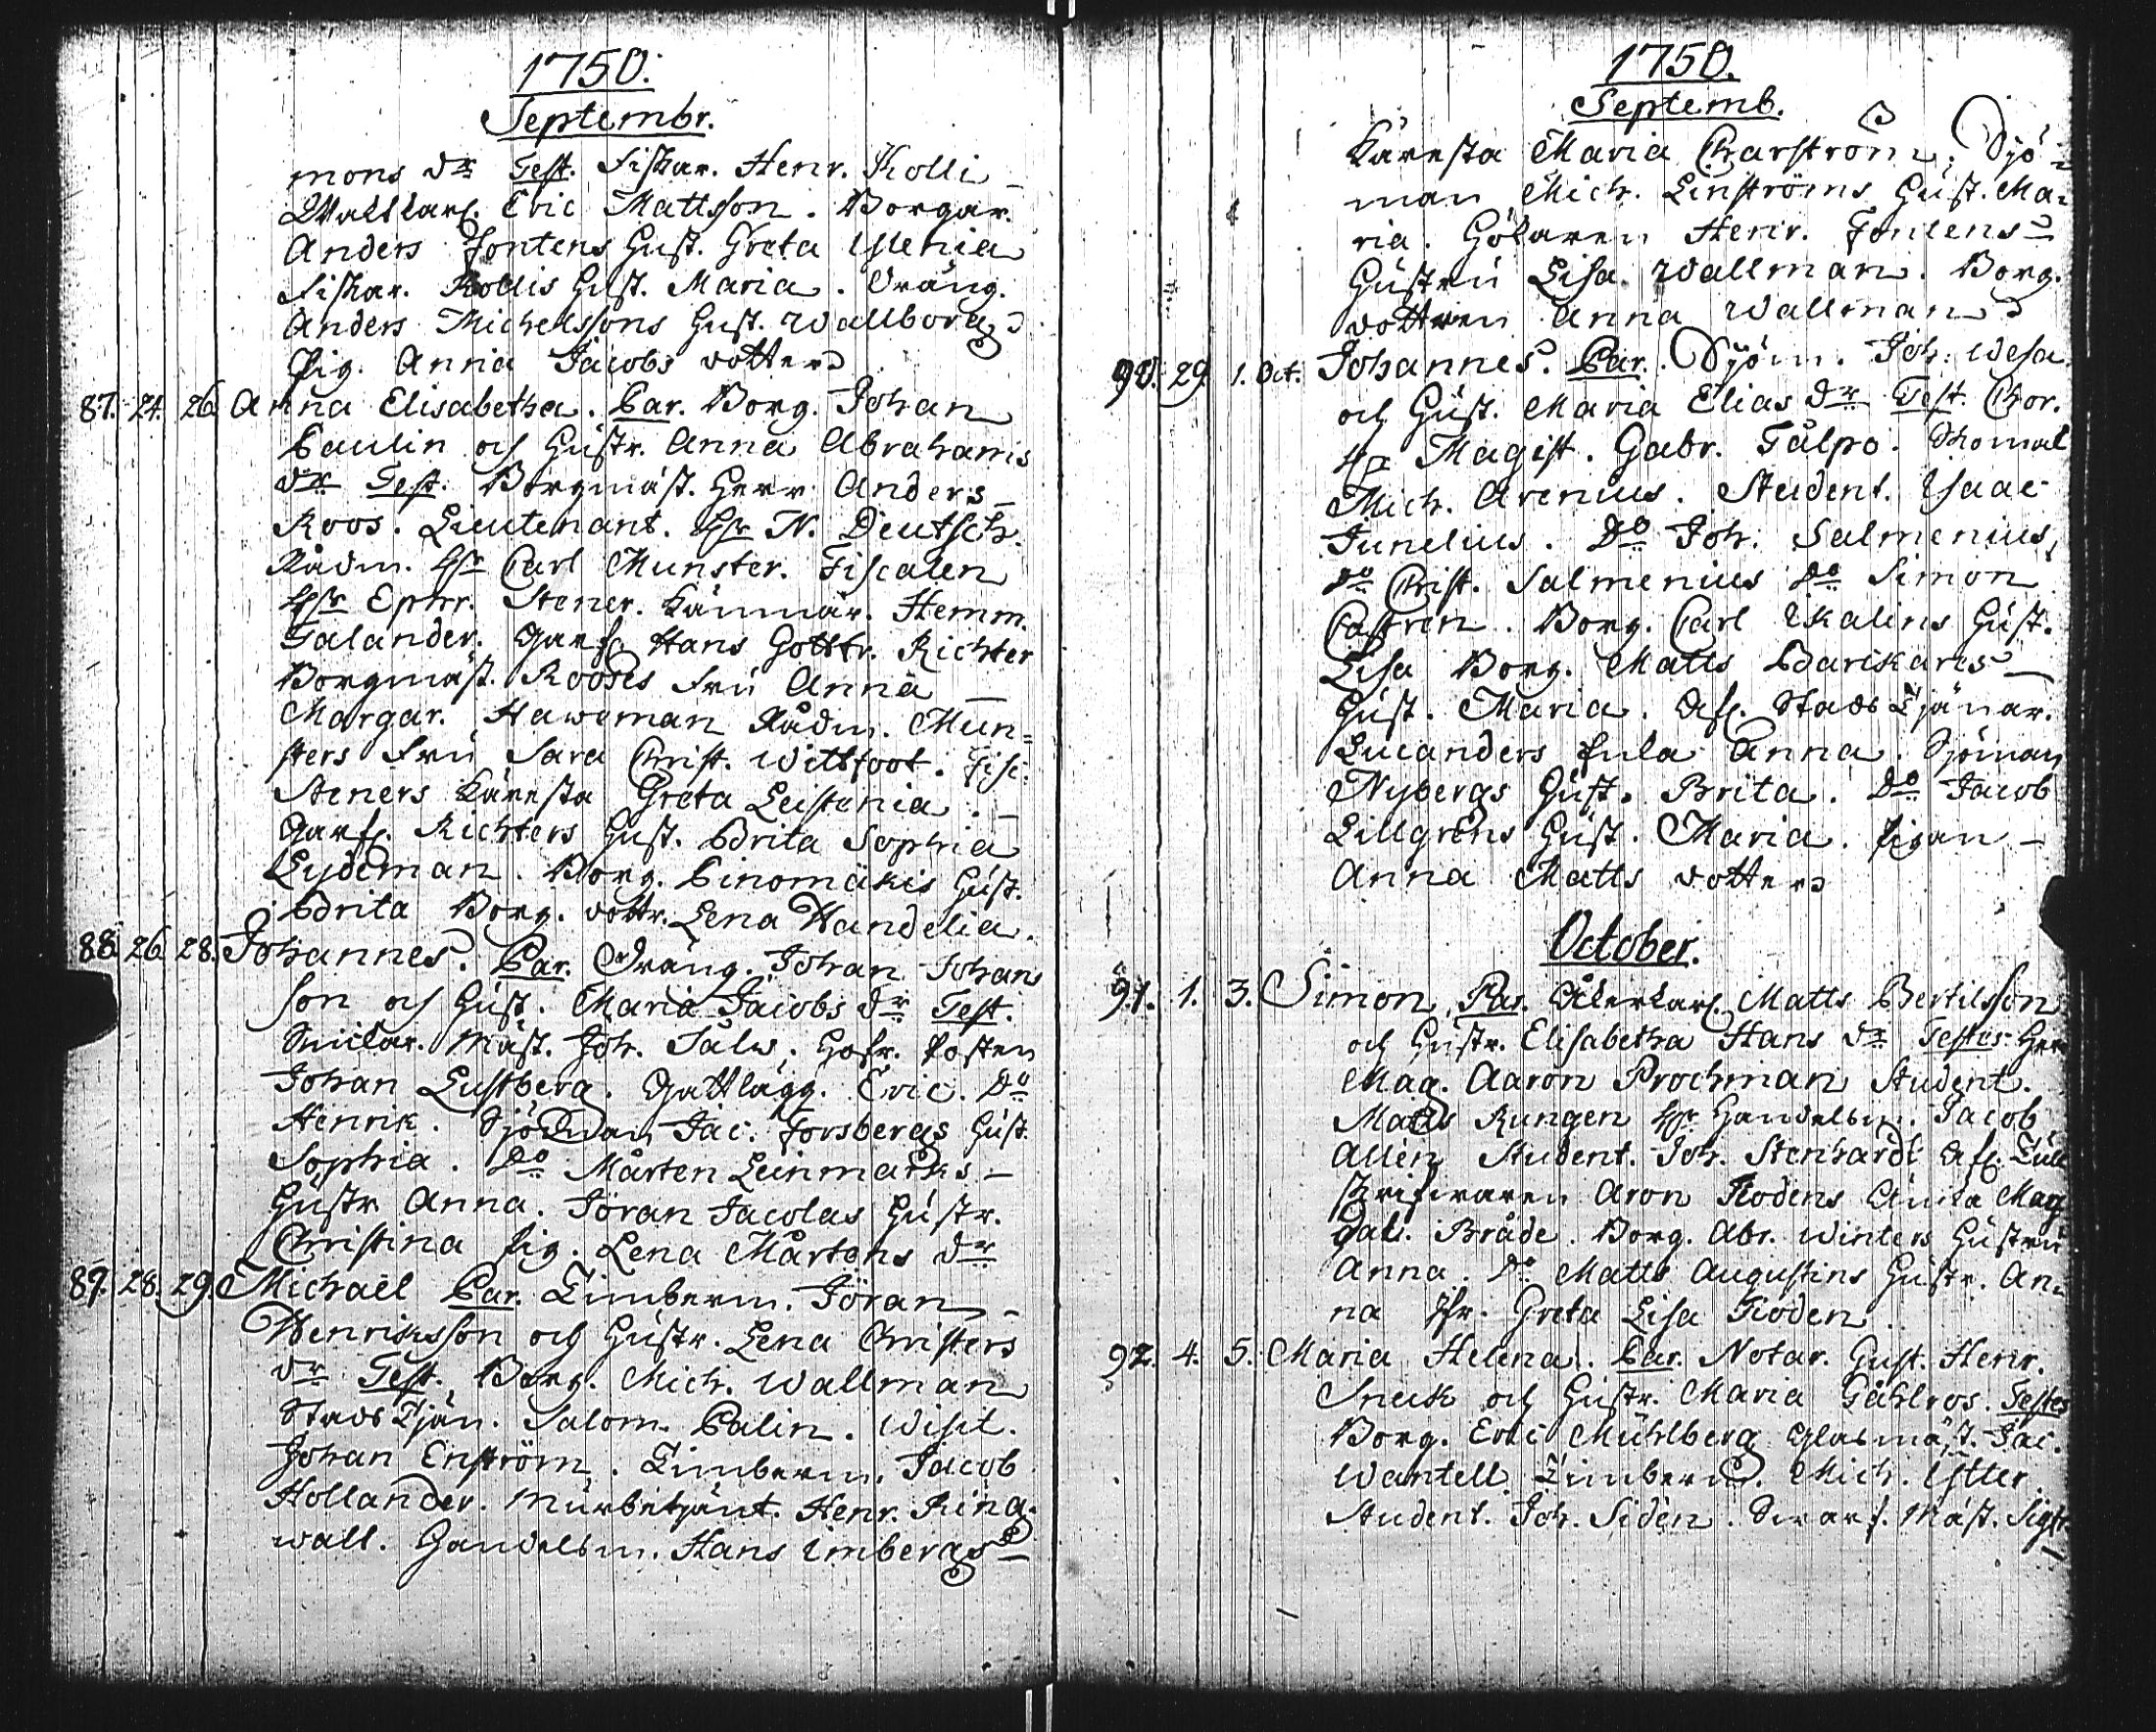 1750.
Septembr.
mons dr Test. Fiskar. Henr. Kolli
Wallkarl. Eric Mattsson. Borgar.
Anders Fontens Hust. Greta Ylenia
Fiskar. Kollis Hust. Maria. Dräng.
Anders Michelssons Hust. Wallborg
Pig. Anna Jacobs dotter
87. 24. 26. Anna Elisabetha. Par. Borg. Johan
Paulin och Hustr. Anna Abrahams
dr Test. Borgmäst. Herr Anders
Roos. Lieutenant. Hr N. Deutsch.
Rådm. Hr Carl Munster. Fiscalen
Hr Ephr. Stener. Kämnär. Hemm.
Talander. Garf. Hans Gottfr. Richter
Borgmäst. Rooses Fru Anna
Margar. Haweman Rådm. Mun=
sters Fru Sara Christ. Wittfoot. Fisc.
Steners Käresta Greta Leistenia.
Garf. Richters Hust. Brita Sophia
Lydeman. Borg. Pinomäkis Hust.
Brita Borg. dottr. Lena Wandelia.
88. 26. 28. Johannes. Par. Dräng. Johan Johans
son och Hust. Maria Jacobs dr Test.
Snickar. Mäst. Joh. Salw. Hofr. Posten
Johan Lustberg. Gattlägg. Eric. Do
Henrik. Sjöman Jac. Forsbergs Hust.
Sophia. Do Mårten Leinmarks
Hustr Anna. Jöran Jacolas Hustr.
Christina Pig. Lena Mårtens dr
89. 28. 29. Michaël Par. Timberm. Jöran
Henriksson och Hustr. Lena Christers
dr Test. Borg. Mich. Wallman
Stads Tjän. Salom. Palin. Visit.
Johan Enström. Timberm. Jacob
Hollander. Murbetjänt. Henr. Ring=
wall. Handelsm. Hans Imbergs
1750.
Septemb.
Käresta Maria Charström. Sjö=
man Mich. Linströms Hust. Ma=
ria. Hökaren Henr. Fontens
Hustru Lisa Wallman. Borg.
dottren Anna Wallman
90. 29. 1. Oct. Johannes. Par. Sjöm. Joh. Wesa
och Hust. Maria Elias dr Test. Chor.
Hr Magist. Gabr. Talpo.
Mich. Arenius. Student. Isaac
Junelius. Do Joh. Salmenius,
Do Christ. Salmenius Do Simon
Castren. Borg. Carl Ekalins Hust.
Lisa Borg. Matts Barckares
Hust. Maria. Afl. Stads Tjänar.
Lucanders Enka Anna. Sjöman
Nybergs Hust. Brita. Do Jacob
Lillgrens Hust. Maria. Pigan
Anna Matts dotter
October.
91. 1. 3. Simon. Par. Åkerkarl. Matts Bertilsson
och Hustr. Elisabetha Hans dr Testes Herr
Mag. Aaron Prochman Student.
Matts Rungen Hr Handelsm. Jacob
Allén Student. Joh. Stenhardt Afl. Tull
skrifwaren Aron Flodens Enka Mag
dal. Bråde. Borg. Abr. Winters Hustru
Anna. Do Matts Augustins Hustr. An=
na Jfr. Greta Lisa Floden
92. 4. 5. Maria Helena. Par. Notar. Gust. Henr.
Sneck och Hustr. Maria Gahlros. Testes
Borg. Eric Mühlberg Glasmäst. Jac.
Wantell. Timberm. Mich. Ytter.
Student. Joh. Sidén. Swarf. Mäst. Sigfr